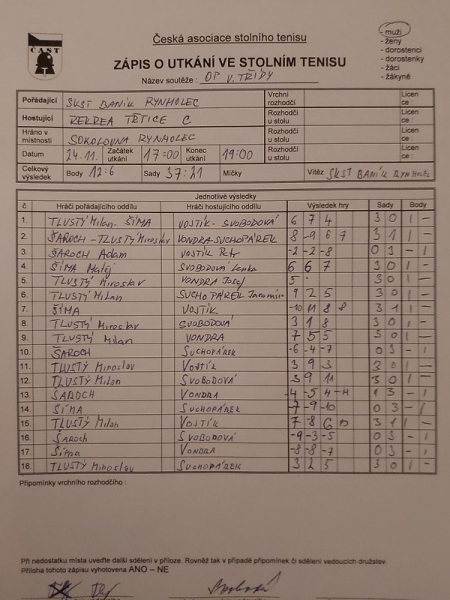 ČAST
Česká asociace stolního tenisu
ZÁPIS O UTKÁNÍ VE STOLNÍM TENISU
- muži
- ženy
- dorostenci
- dorostenky
- žáci
- žákyně
Název soutěže : OP V. TŘÍDY
Pořádající SKST BANÍK RYNHOLEC Vrchní rozhodčí Licence :
Hostující REKREA TŘTICE C Rozhodčí u stolu Licence :
Hráno v místnosti SOKOLOVNA RYNHOLEC Rozhodčí u stolu Licence :
Datum 24.11. Začátek utkání 17:00 Konec utkání 19:00 Rozhodčí u stolu Licence :
Celkový výsledek Body 12:6 Sady 37:21 Míčky Vítěz SKST BANÍK RYNHOLEC
Jednotlivé výsledky
č. Hráči pořádajícího oddílu Hráči hostujícího oddílu Výsledek hry Sady Body
1. TLUSTÝ Milan - ŠÍMA VOJTÍK - SVOBODOVÁ 6 7 4 3 0 1 -
2. ŠAROCH - TLUSTÝ Miroslav VONDRA SUCHOPÁREK 8 -9 6 7 3 1 1 -
3. ŠAROCH Adam VOJTÍK Petr -2 -2 -8 0 3 - 1
4. ŠÍMA Matěj SVOBODOVÁ Lenka 6 6 7 3 0 1 -
5. TLUSTÝ Miroslav VONDRA Josef 5 3 0 1 -
6. TLUSTÝ Milan SUCHOPÁREK Jaromír 9 2 5 3 0 1 -
7. ŠÍMA VOJTÍK -10 11 8 8 3 1 1 -
8. TLUSTÝ Miroslav SVOBODOVÁ 3 1 8 3 0 1 -
9. TLUSTÝ Milan VONDRA 7 5 5 3 0 1 -
10. ŠAROCH SUCHOPÁREK -6 -4 -7 0 3 - 1
11. TLUSTÝ Miroslav VOJTÍK 3 9 3 3 0 1 -
12. TLUSTÝ Milan SVOBODOVÁ 3 9 11 3 0 1 -
13. ŠAROCH VONDRA -4 -5 4 -4 1 3 - 1
14. ŠÍMA SUCHOPÁREK -7 -9 -10 0 3 - 1
15. TLUSTÝ Milan VOJTÍK 7 -8 6 10 3 1 1 -
16. ŠAROCH SVOBODOVÁ -9 -3 -5 0 3 - 1
17. ŠÍMA VONDRA -8 -8 -7 0 3 - 1
18. TLUSTÝ Miroslav SUCHOPÁREK 3 2 5 3 0 1 -
Připomínky vrchního rozhodčího :
Při nedostatku místa uveďte další sdělení v příloze. Rovněž tak v případě připomínek či sdělení vedoucích družstev.
Příloha tohoto zápisu vyhotovena ANO – NE